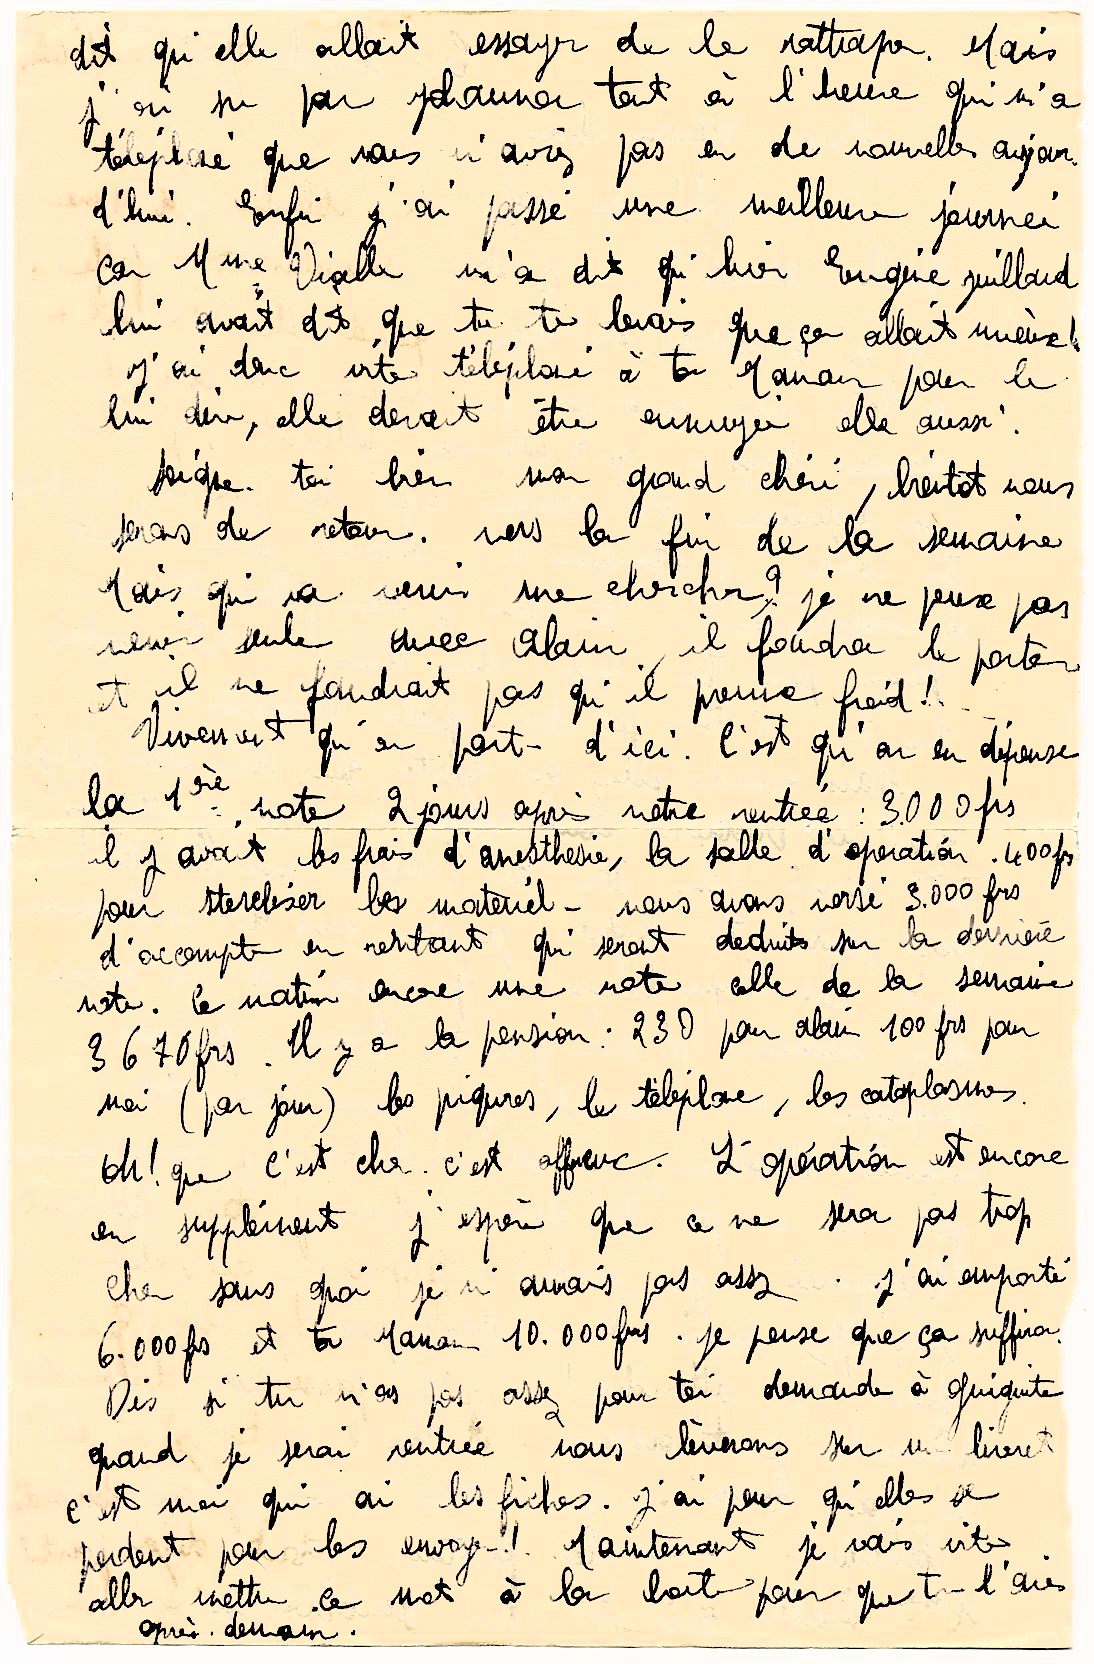 dit qu'elle allait essayer de le rattraper. Mais
j'ai su par Johanna tout à l'heure qui m'a
téléphoné que vous n'aviez pas eu de nouvelles aujour.
d'hui. Enfin j'ai passé une meilleure journée
car Mme Vialle m'a dit qu'hier Eugène juillard
lui avait dit que tu te levais que ça allait mieux!
j'ai donc vite téléphoné à ta Maman pour le
lui dire, elle devait être ennuyée elle aussi.
soigne. toi bien mon grand chéri, bientôt nous
serons de retour. vers la fin de la semaine
Mais qui va venir me chercher? je ne peux pas
venir seule avec Alain, il faudra le porter
et il ne faudrait pas qu'il prenne froid!
Vivement qu'on parte d'ici. C'est qu'on en dépense
la 1ère note 2 jours après notre rentrée : 3.000 frs
il y avait les frais d'anesthésie, la salle d'operation. 400 frs
pour stereliser les matériel - nous avons versé 3.000 frs
d'accompte en rentrant qui seront deduits sur la dernière
note. Ce matin encore une note celle de la semaine
3670 frs. Il y a la pension : 230 pour alain 100 frs pour
moi (par jour) les piqures, le téléphone, les cataplasmes.
Oh! que c'est cher. c'est affreux. L'opération est encore
en supplément j'espère que ce ne sera pas trop
cher sans quoi je n'aurais pas assez. j'ai emporté
6.000 frs et ta Maman 10.000 frs. je pense que ça suffira.
Dis si tu n'as pas assez pour toi demande à Guiguite
quand je serai rentrée nous lèverons sur un livret
c'est moi qui ai les fiches. J'ai peur qu'elles se
perdent pour les envoyer! Maintenant je vais vite
aller mettre ce mot à la boite pour que tu l'aies
après. demain.